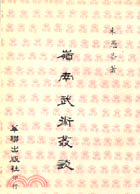 朱愚齋著
嶺南武術叢談
華聯出版社印行